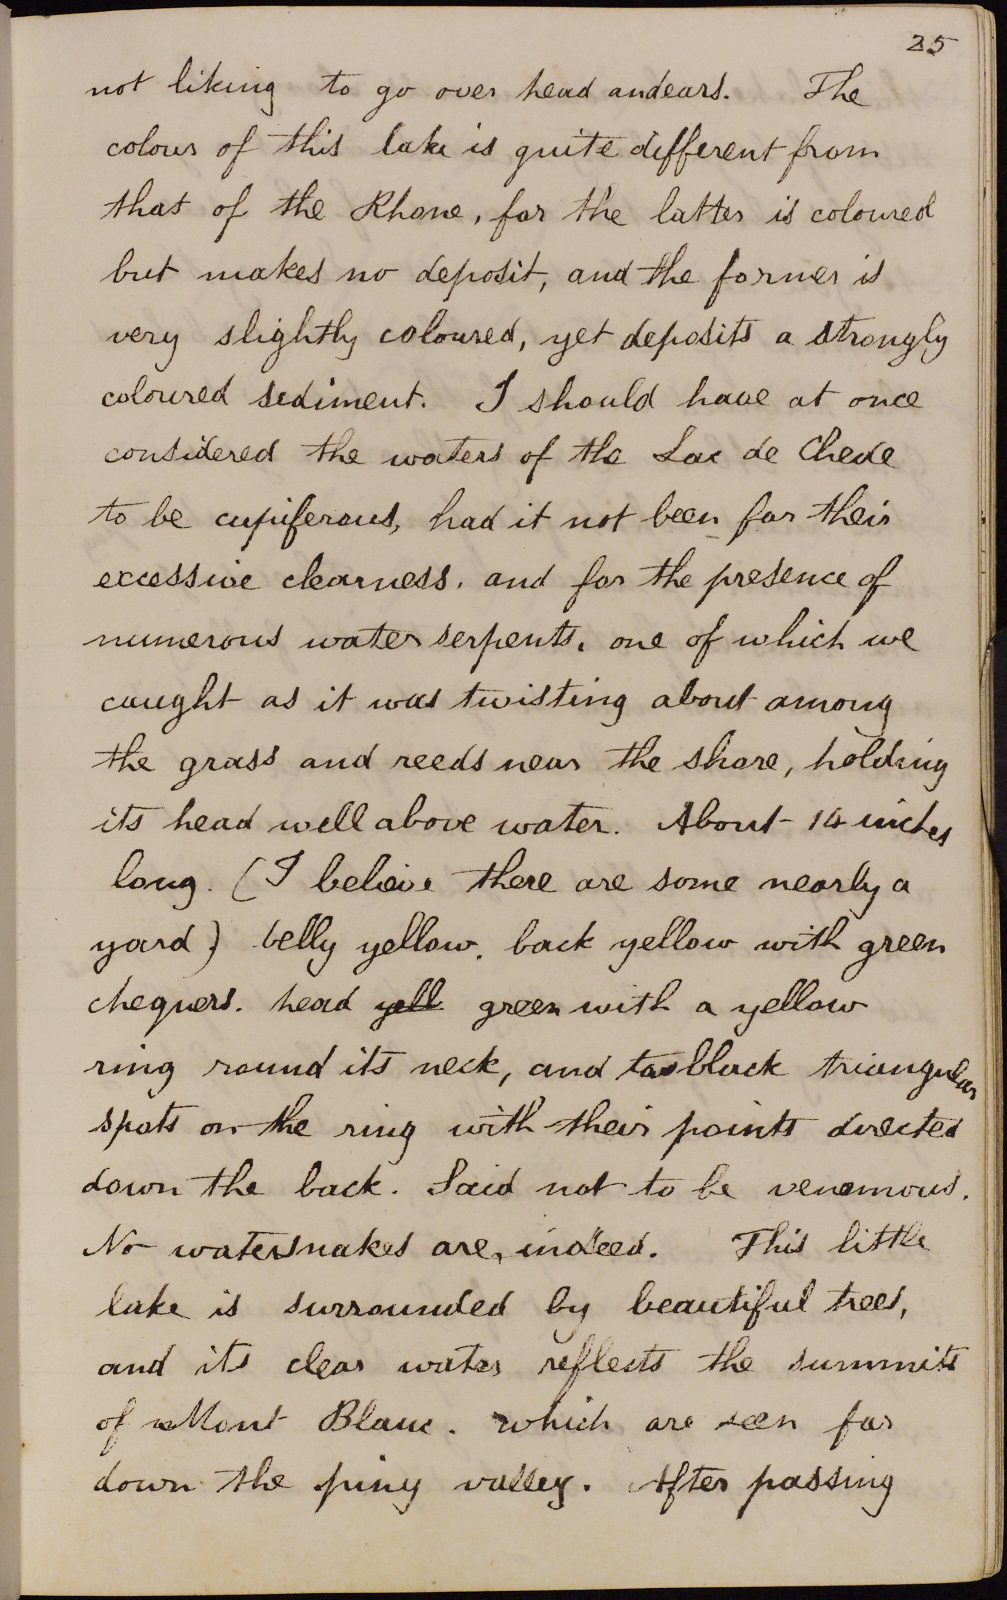 25
not liking to go over head andears. The
colour of this lake is quite different from
that of the Rhone, for the latter is coloured
but makes no deposit, and the former is
very slightly coloured, yet deposits a strongly
coloured sediment. I should have at once
considered the waters of the Lac de Chede
to be cupiferous, had it not been for their
excessive clearness. and for the presence of
numerous water serpents. one of which we
caught as it was twisting about among
the grass and reeds near the shore, holding
its head well above water. About 14 inches
long. (I believe there are some nearly a
yard) belly yellow. back yellow with green
chequers. head yell green with a yellow
ring round its neck, and two black triangular
spots on the ring with their points directed
down the back. Said not to be venomous.
No watersnakes are, indeed. This little
lake is surrounded by beautiful trees,
and its clear water reflects the summits
of Mont Blanc. which are seen far
down the piny valley. After passing